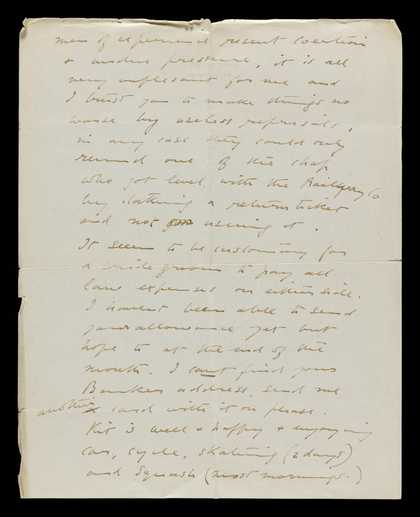 men of experience resent coercion
& undue pressure, it is all
very unpleasant for me and
I trust you to make things no
worse by useless reprisals,
in any case they could only
remind one of the chap
who got level with the Railway Co
by buying a return ticket
and not using it.
It seems to be customary for
a bridegroom to pay all
law expenses on either side.
I haven't been able to send
your allowance yet but
hope to at the end of the
month. I can't find your
Bankers address, send me
another card with it on please.
Kit is well & happy & enjoying
car, cycle, skating (2 days)
and Squash (most mornings.)